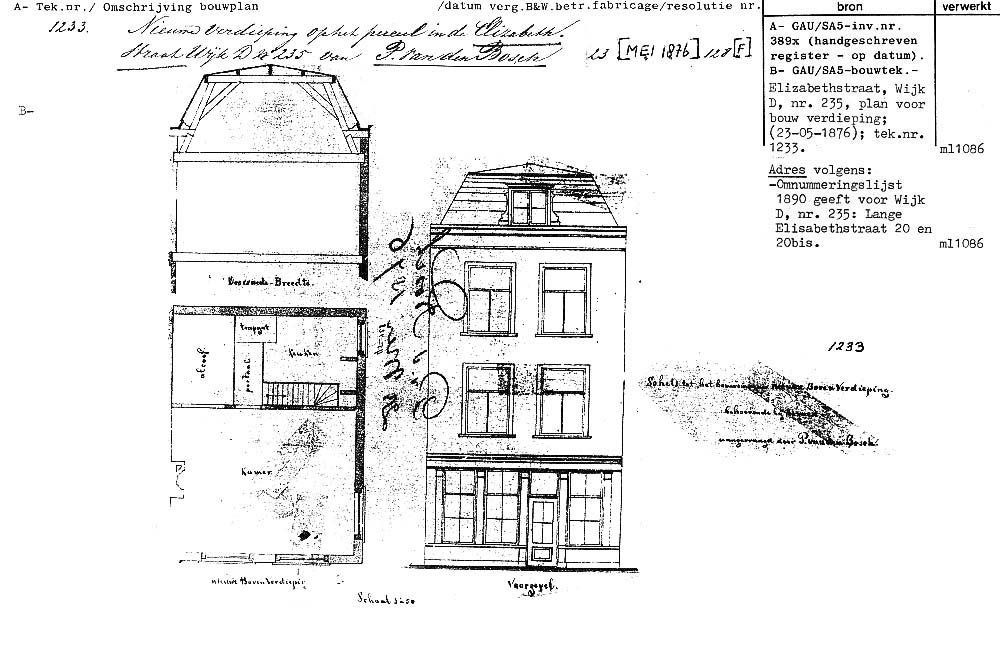 A- Tek.nr./ Omschrijving bouwplan /datum verg.B&W.betr.fabricage/resolutie nr.
bron
verwerkt
1233. Nieuwe Verdieping op het perceel in de Elizabeth.
Straat Wijk D No 235 van P. van den Bosch 23 [MEI 1876] 128 [F]
B-
A- GAU/SA5-inv.nr.
389x (handgeschreven
register - op datum).
B- GAU/SA5-bouwtek.-
Elizabethstraat, Wijk
D, nr. 235, plan voor
bouw verdieping;
(23-05-1876); tek.nr.
1233.
ml1086
Adres volgens:
-Omnummeringslijst
1890 geeft voor Wijk
D, nr. 235: Lange
Elisabethstraat 20 en
20bis.
ml1086
Doorsnede-Breedte.
alcoof
portaal
Keuken
Kamer
nieuwe Boven Verdieping
Schaal 1:50
Voorgevel.
1233
Schets tot het bouwen nieuwe Boven Verdieping.
behoorende bij
aangevraagd door P. van den Bosch